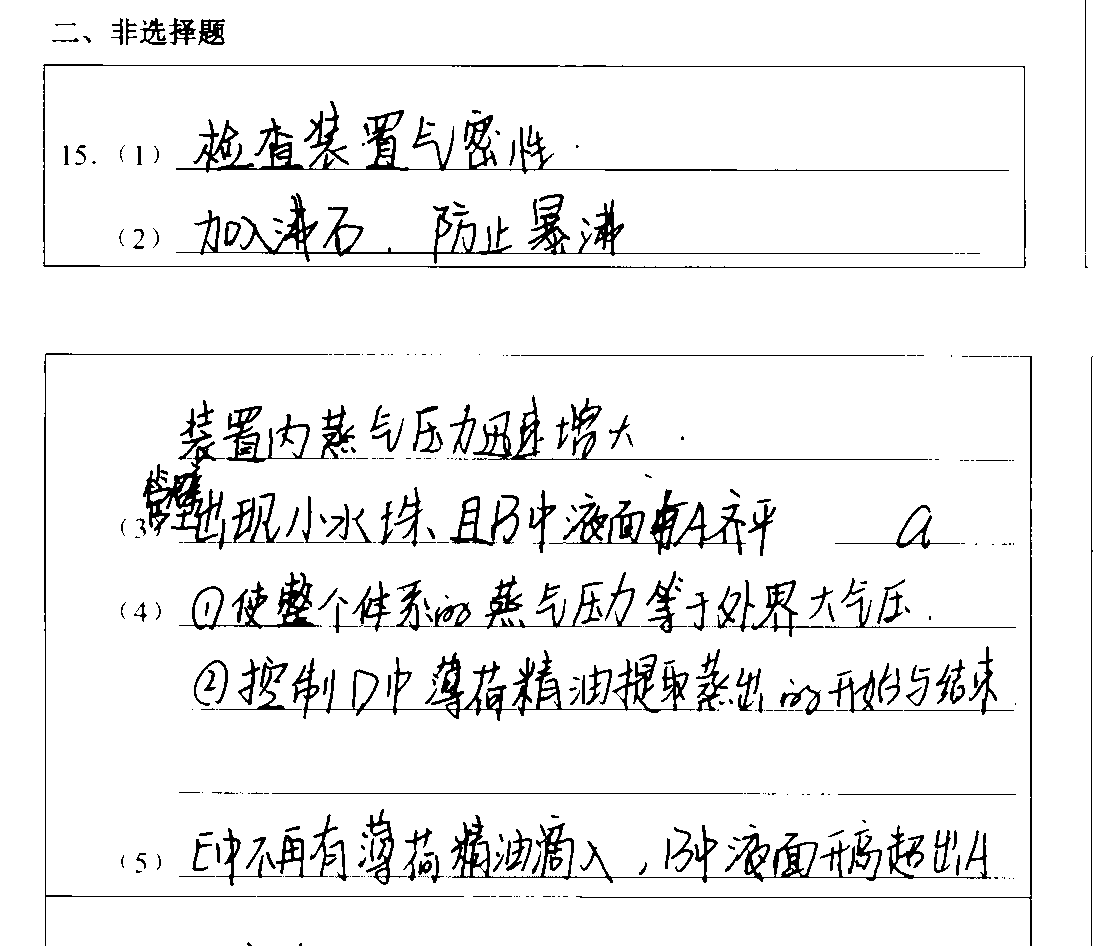 二、非选择题
15.（1）检查装置气密性.
（2）加入沸石. 防止暴沸
装置内蒸气压力迅速增大.
（3）出现小水珠、且B中液面与A齐平 a
（4）①使整个体系的蒸气压力等于外界大气压.
②控制D中薄荷精油提取蒸出的开始与结束
（5）E中不再有薄荷精油滴入，B中液面升高超出A